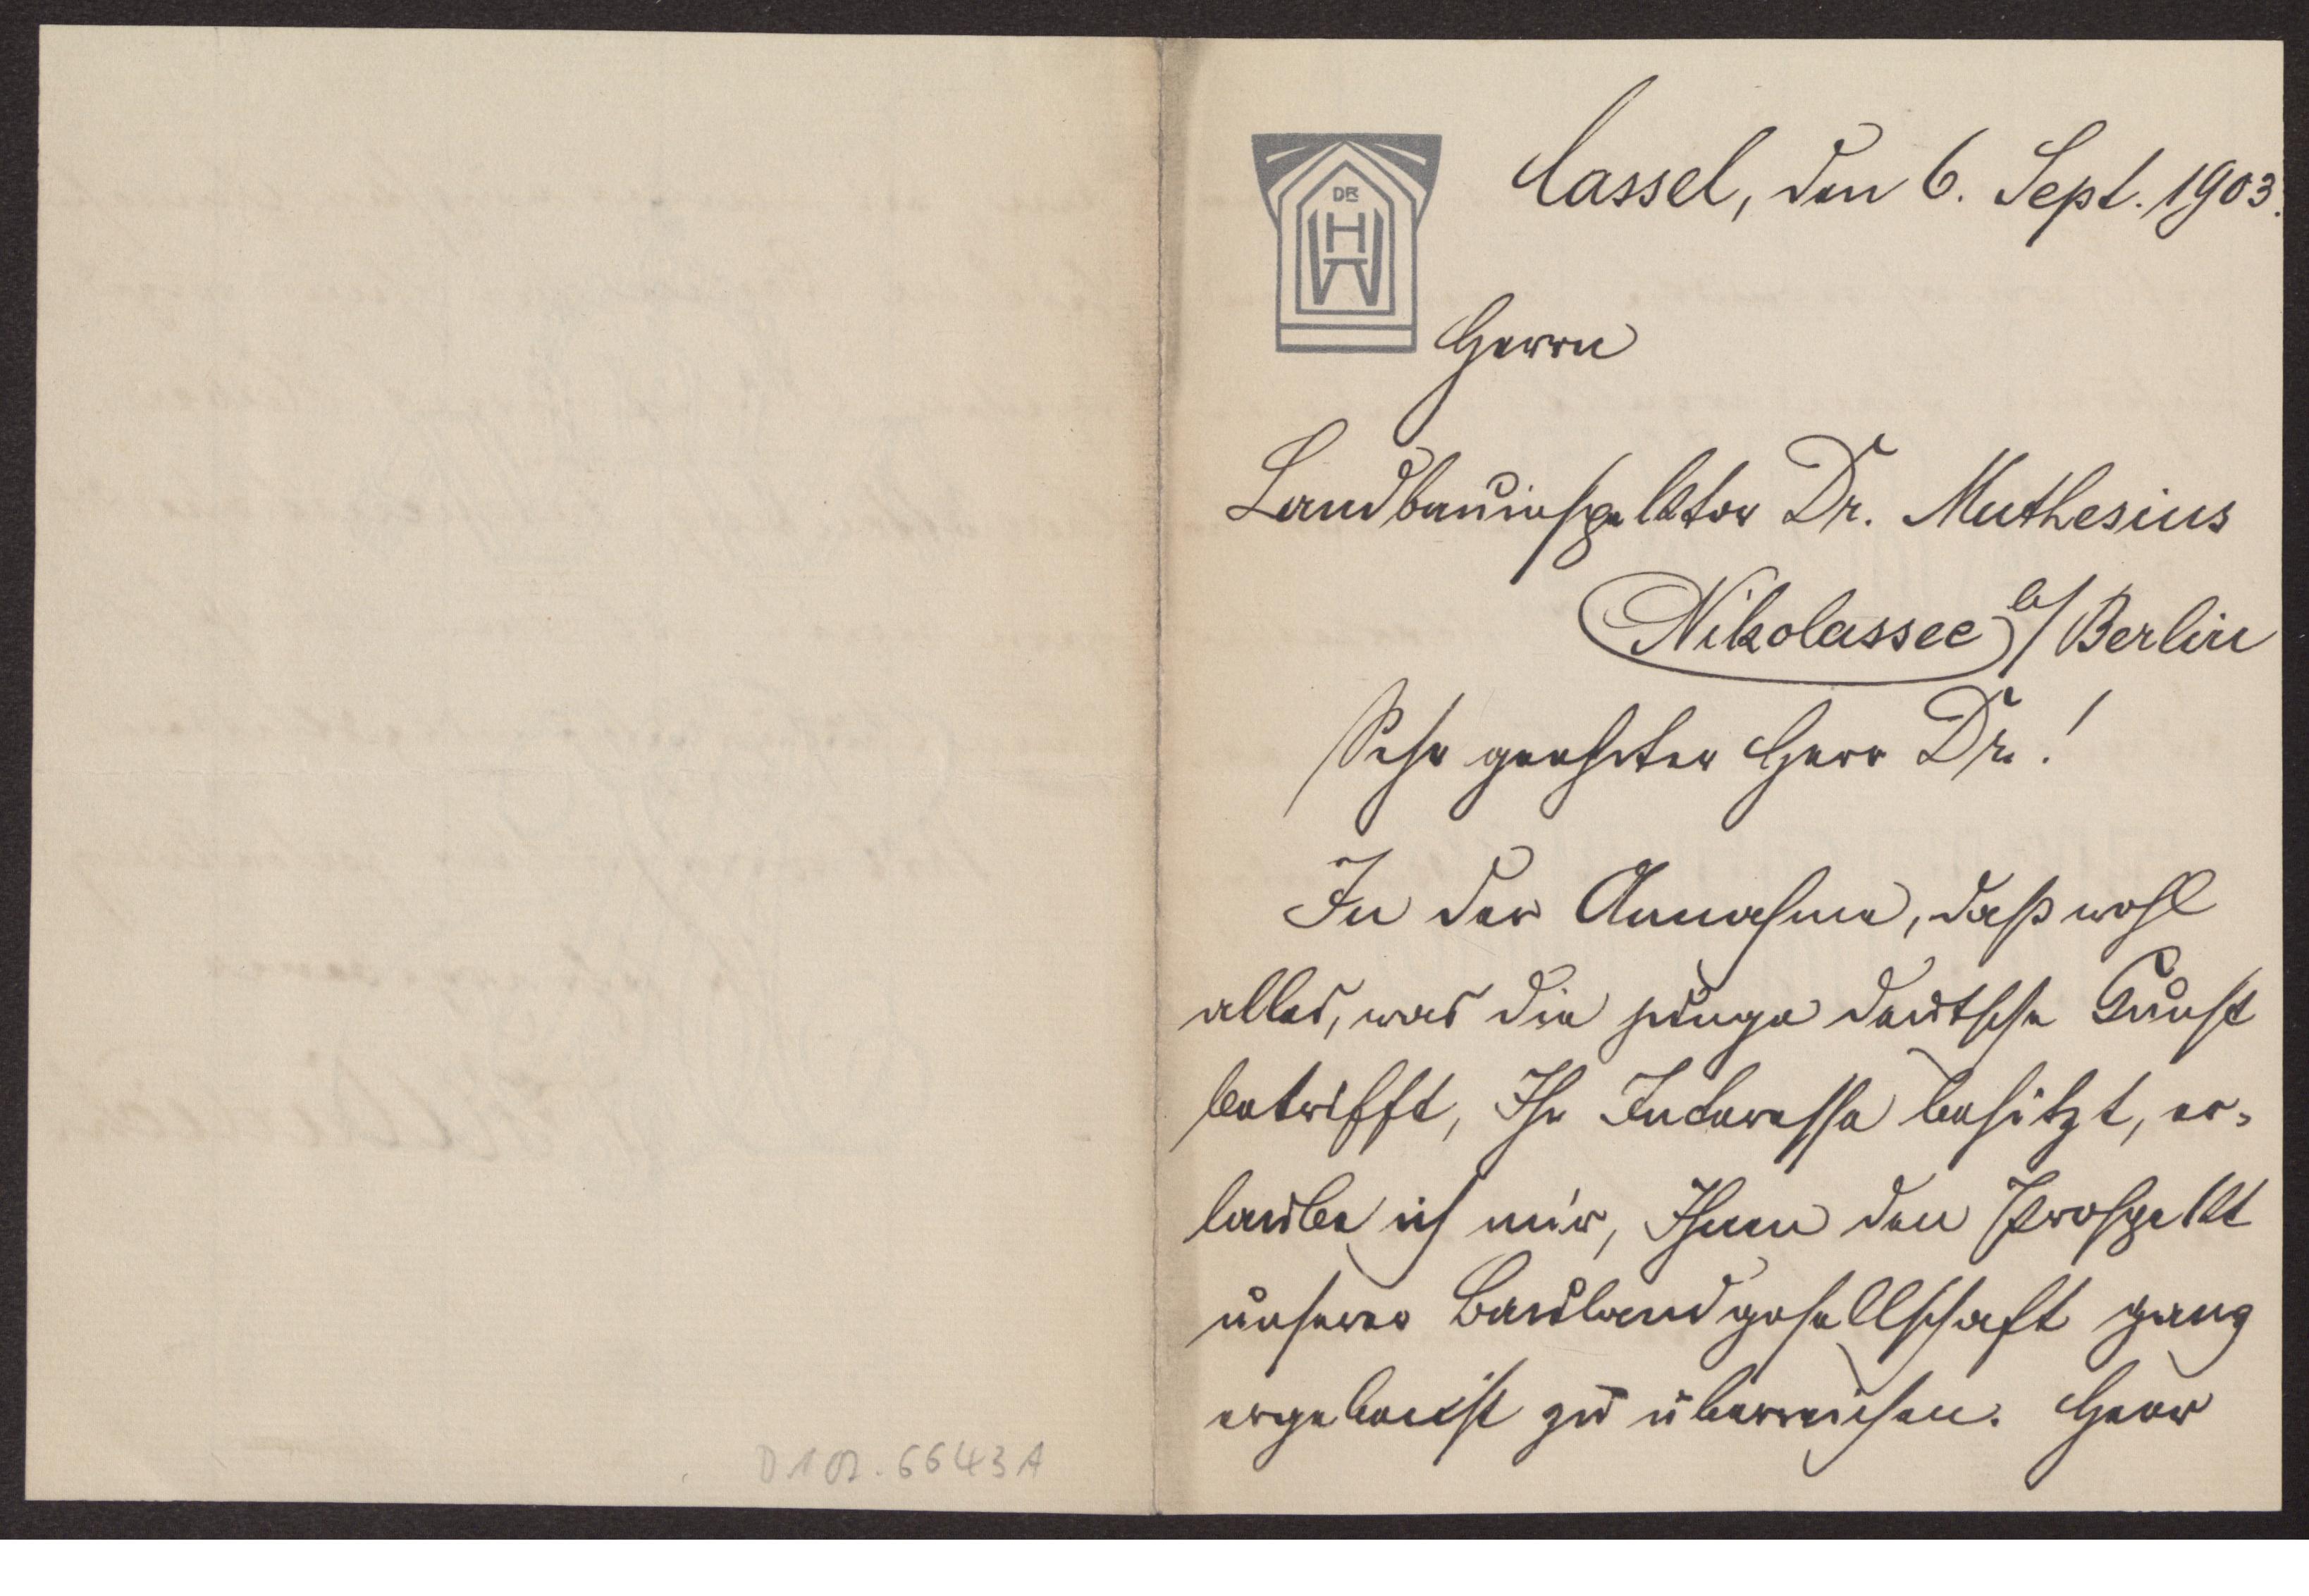 D 102.6643 A
DR
HW
Cassel, den 6. Sept. 1903.
Herrn
Landbauinspektor Dr. Muthesius
Nikolassee b/Berlin
Sehr geehrter Herr Dr.!
In der Annahme, daß wohl
alles, was die junge deutsche Kunst
betrifft, Ihr Interesse besitzt, er-
laube ich mir, Ihnen den Prospekt
unserer Baulandgesellschaft ganz
ergebenst zu überreichen. Herr